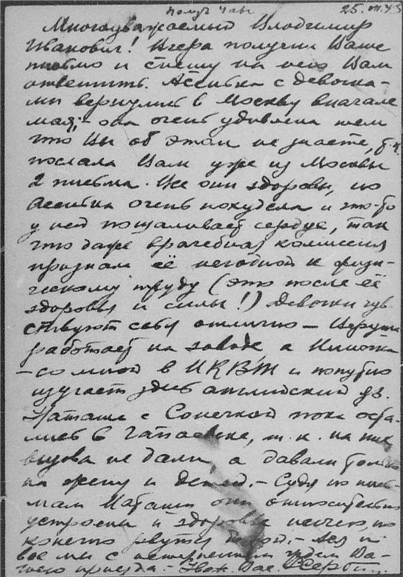 25.VI.43
Многоуважаемый Владимир
Иванович! Вчера получил Ваше
письмо и спешу на него Вам
ответить. Асенька с девочка-
ми вернулись в Москву вначале
мая; - она очень удивлена тем
что Вы об этом не знаете, т.к.
послала Вам уже из Москвы
2 письма. Все они здоровы, но
Асенька очень похудела и что-то
у ней пошаливает сердце, так
что даже врачебная комиссия
признала её негодной к физи-
ческому труду (это после её
здоровья и силы!) Девочки чув-
ствуют себя отлично -
работает на заводе а
- со мной в и попутно
изучает здесь английский яз.
Наташа с Сонечкой пока оста-
лись в т.к. на них
вызова не дали, а давали только
на жену и детей. - Судя по пись-
мам Наташи они относительно
устроены и здоровы ничего, но
конечно рвутся домой. -
все мы с нетерпением ждем Ва-
шего приезда. - Уваж. Вас